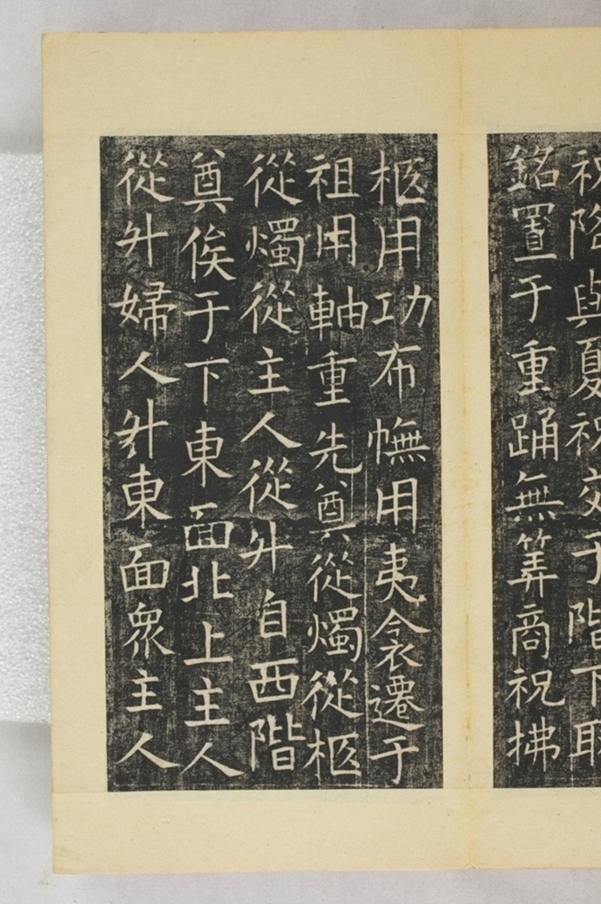 祝降與夏祝交于階下取
銘置于重踊無筭商祝拂
柩用功布幠用夷衾遷于
祖用軸重先奠從燭從柩
從燭從主人從升自西階
奠俟于下東面北上主人
從升婦人升東面衆主人